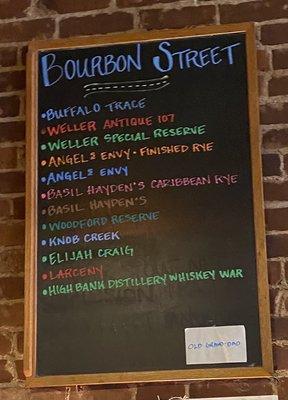 BOURBON STREET
•BUFFALO TRACE
•WELLER ANTIQUE 107
•WELLER SPECIAL RESERVE
•ANGEL'S ENVY - FINISHED RYE
•ANGEL'S ENVY
•BASIL HAYDEN'S CARIBBEAN RYE
•BASIL HAYDEN'S
•WOODFORD RESERVE
•KNOB CREEK
•ELIJAH CRAIG
•LARCENY
•HIGH BANK DISTILLERY WHISKEY WAR
OLD GRAND-DAD